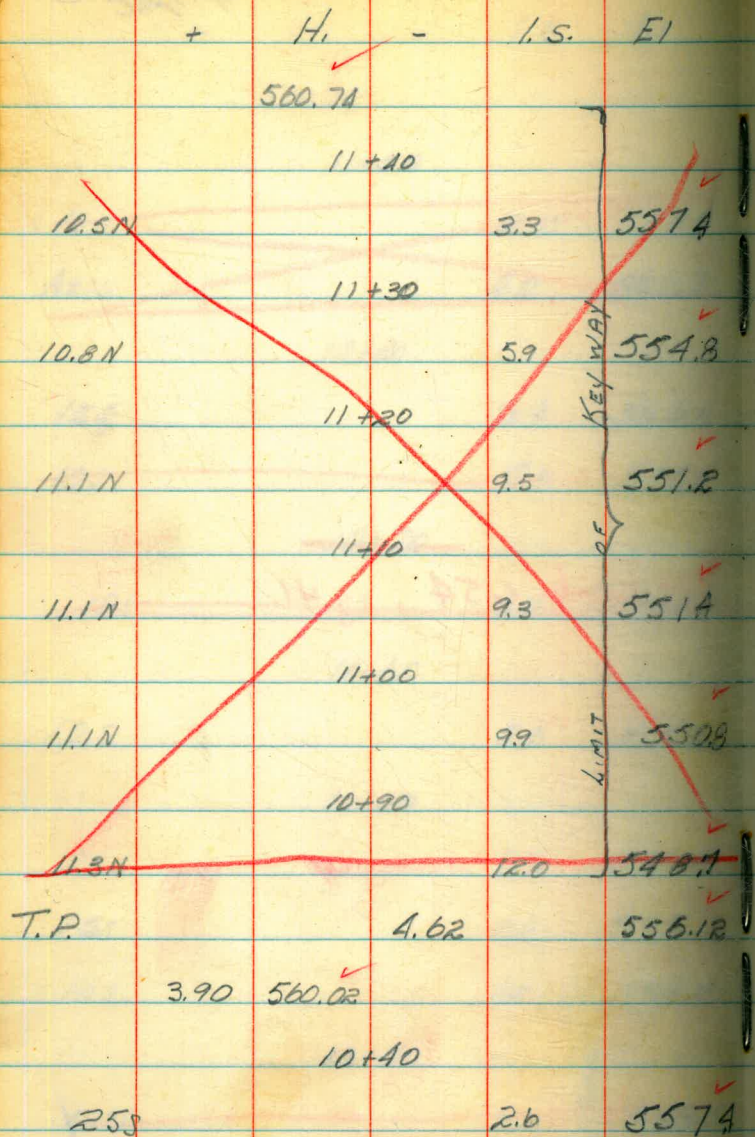 + H. - I.S. El
560.74
11+40
10.5N 3.3 557.4
11+30
10.8N 5.9 554.8
11+20
11.1N 9.5 551.2
11+10
11.1N 9.3 551.4
11+00
11.1N 9.9 550.8
10+90
11.3N 12.0 548.7
LIMIT OF KEY WAY
T.P. 4.62 556.12
3.90 560.02
10+40
25s 2.6 557.4